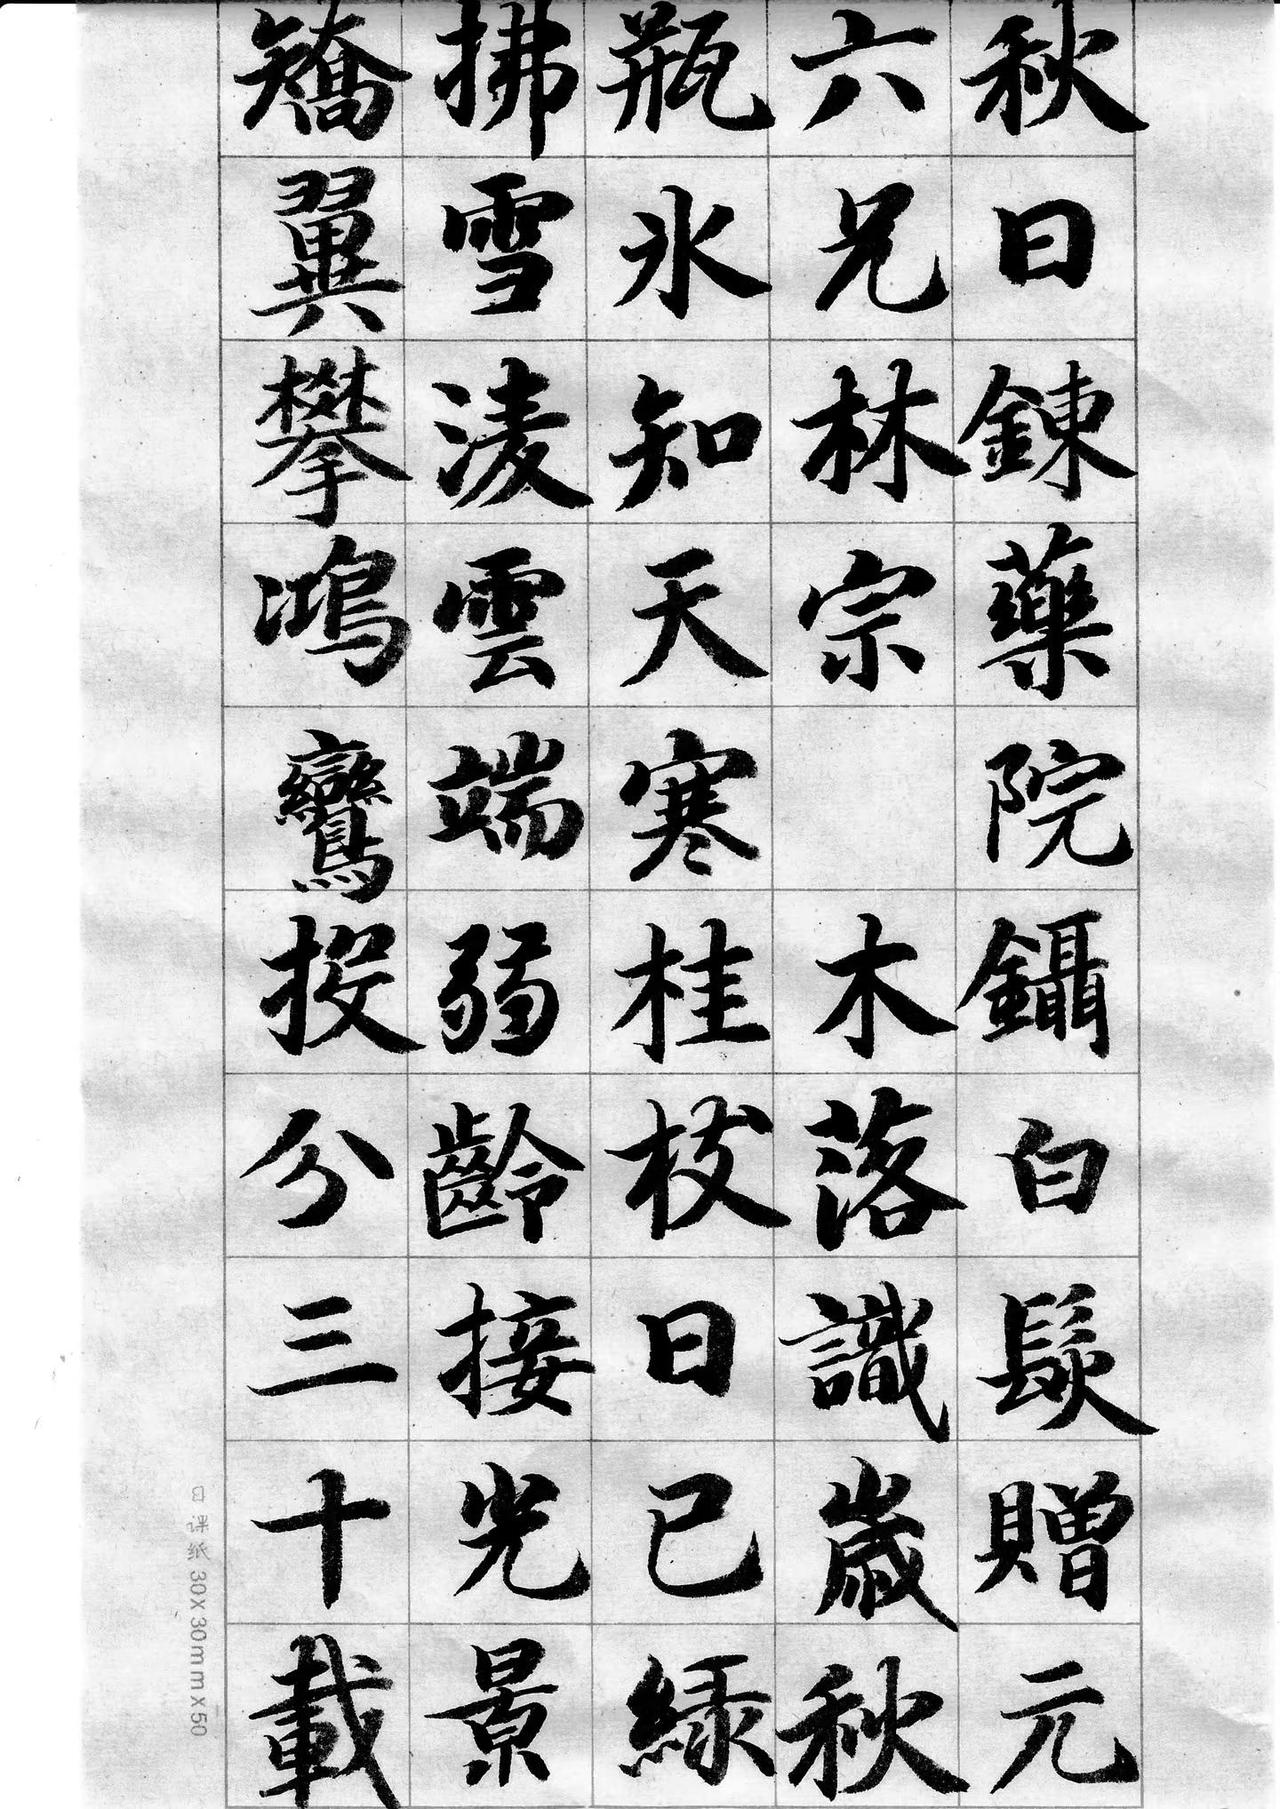 秋日錬藥院鑷白髮贈元
六兄林宗　木落識歲秋
瓶氷知天寒桂枝日已綠
拂雪淩雲端弱齡接光景
矯翼攀鴻鸞投分三十載
日课纸 30X30mmX50